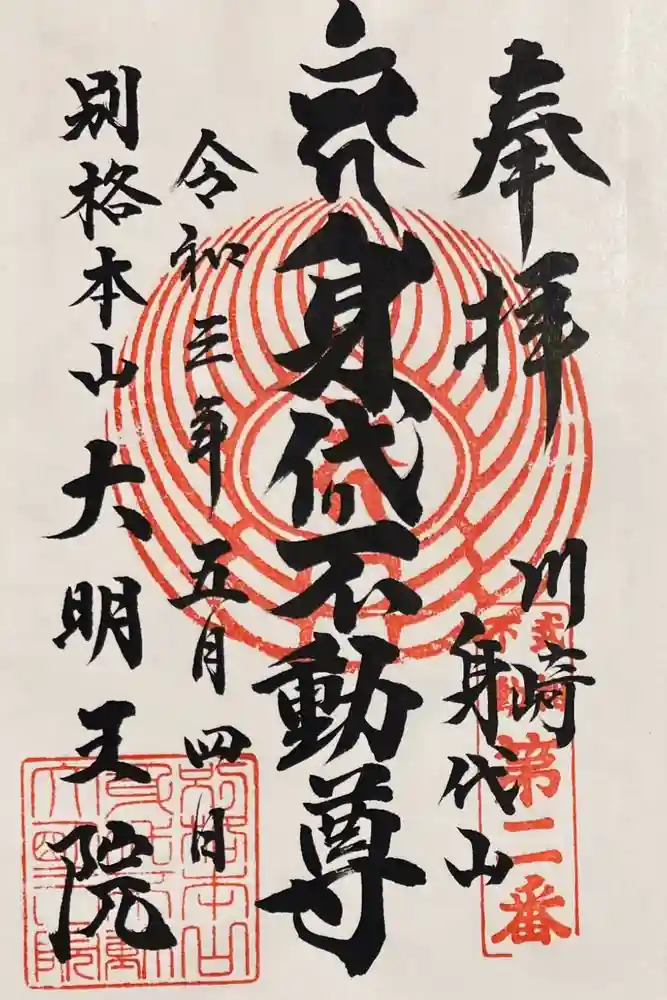 奉拝
川崎
身代山
身代不動尊
令和三年五月四日
別格本山大明王院
第二番